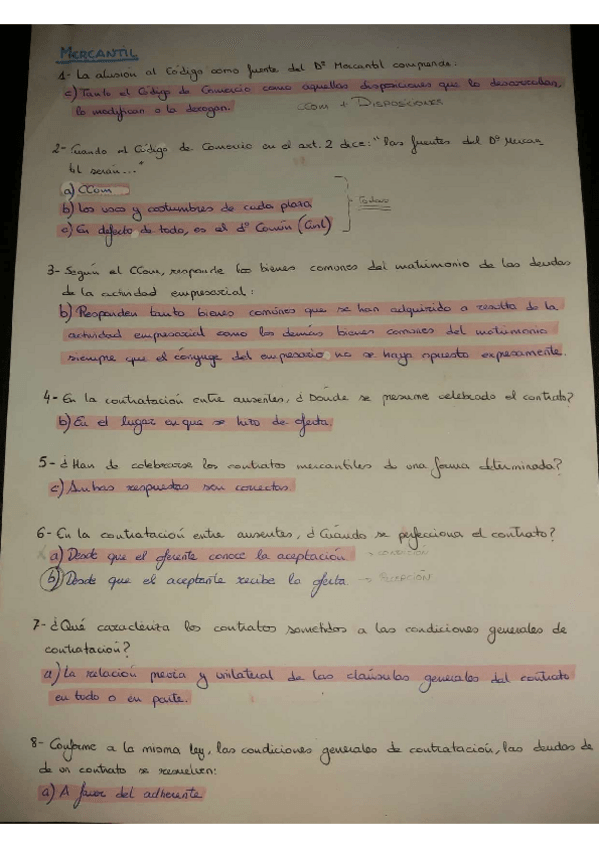 MERCANTIL
1- La alusión al Código como fuente del Dº Mercantil comprende:
c) Tanto el Código de Comercio como aquellas disposiciones que lo desarrollan,
lo modifican o la derogan. CCom + DISPOSICIONES
2- Cuando el Código de Comercio en el art. 2 dice: "las fuentes del Dº Mercan
til serán..."
a) CCom
b) Los usos y costumbres de cada plaza
c) En defecto de todo, es el dº Común (Civil)
Todas
3- Según el CCom, responde los bienes comunes del matrimonio de las deudas
de la actividad empresarial:
b) Responden tanto bienes comunes que se han adquirido a resulta de la
actividad empresarial como los demás bienes comunes del matrimonio
siempre que el cónyuge del empresario no se haya opuesto expresamente.
4- En la contratación entre ausentes, ¿Dónde se presume celebrado el contrato?
b) En el lugar en que se hizo de oferta.
5- ¿Han de celebrarse los contratos mercantiles de una forma determinada?
c) Ambas respuestas son correctas.
6- En la contratación entre ausentes, ¿Cuándo se perfecciona el contrato?
a) Desde que el oferente conoce la aceptación
b) Desde que el aceptante recibe la oferta →
7- ¿Qué caracteriza los contratos sometidos a las condiciones generales de
contratación?
a) La relación previa y unilateral de las cláusulas generales del contrato
en todo o en parte.
8- Conforme a la misma ley, las condiciones generales de contratación, las deudas de
de un contrato se resuelven:
a) A favor del adherente